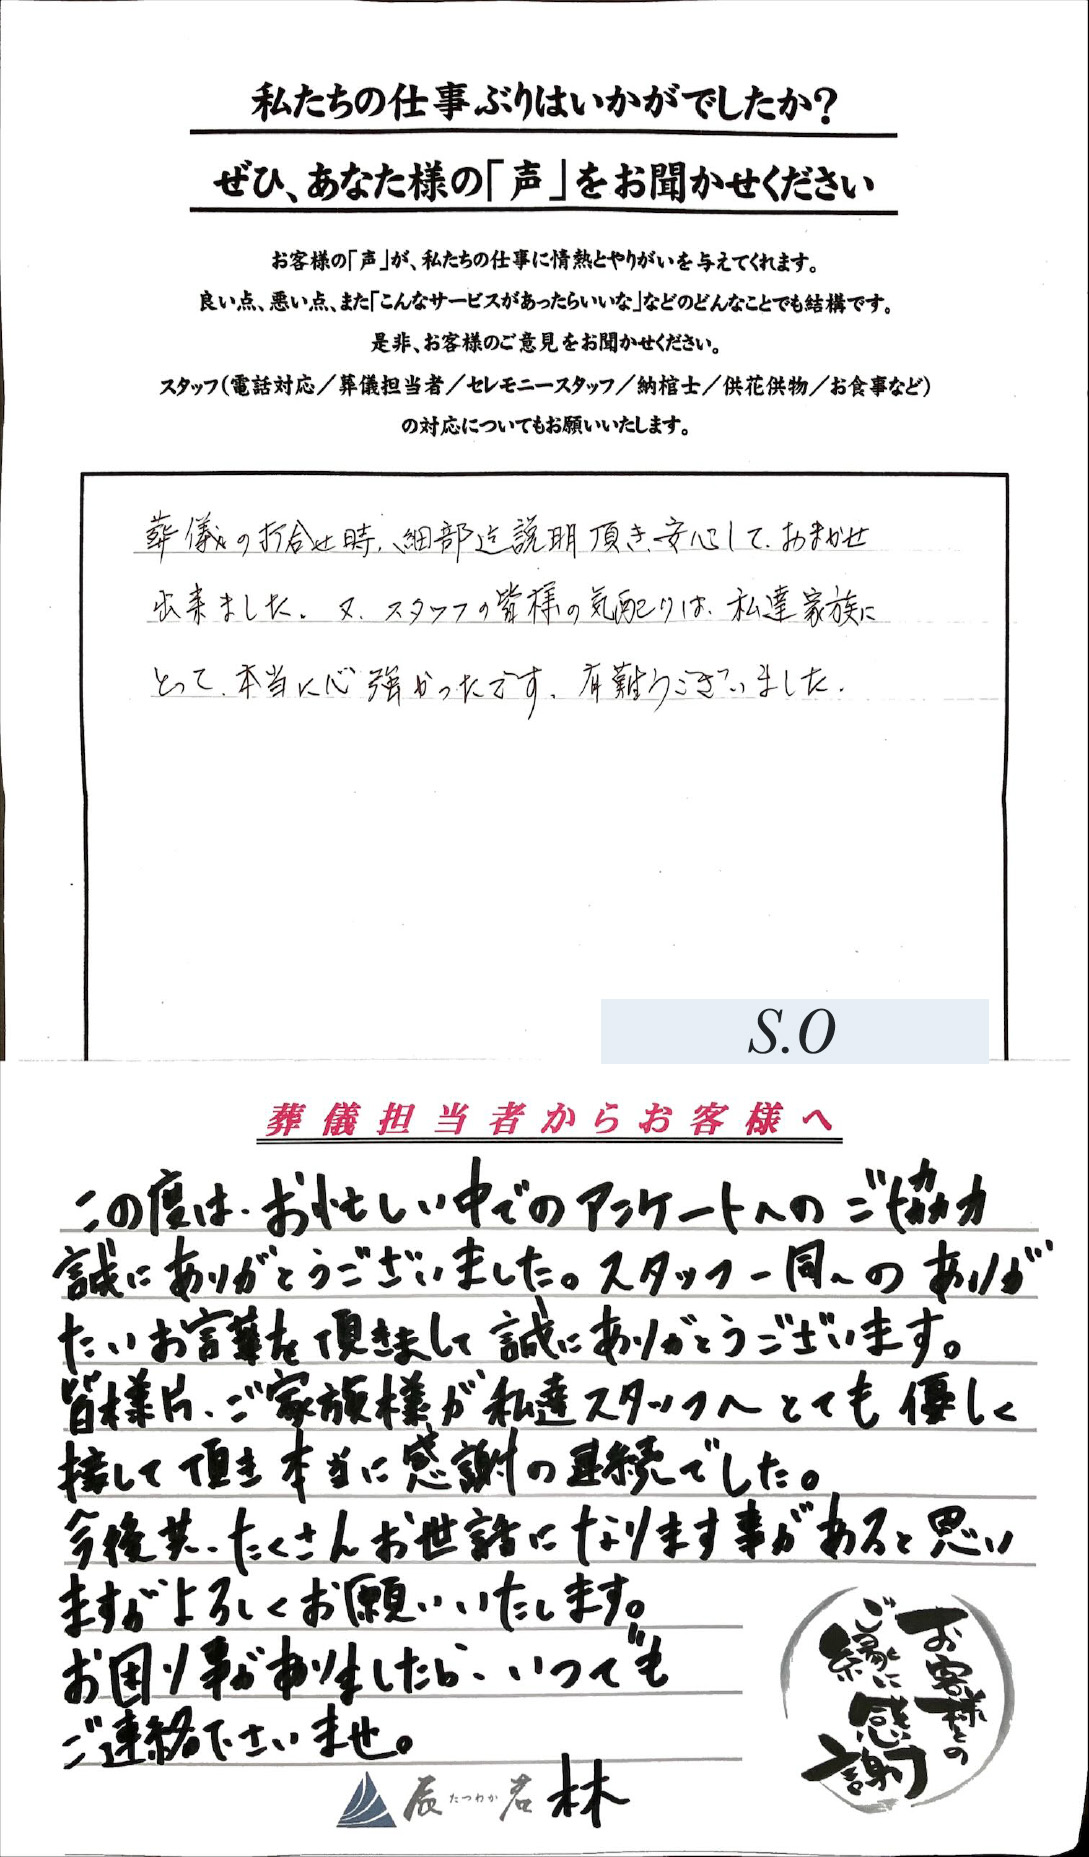 私たちの仕事ぶりはいかがでしたか?
ぜひ、あなた様の「声」をお聞かせください
お客様の「声」が、私たちの仕事に情熱とやりがいを与えてくれます。
良い点、悪い点、また「こんなサービスがあったらいいな」などのどんなことでも結構です。
是非、お客様のご意見をお聞かせください。
スタッフ(電話対応/葬儀担当者/セレモニースタッフ/納棺士/供花供物/お食事など)
の対応についてもお願いいたします。
葬儀の打合せ時、細部迄説明頂き、安心して、おまかせ
出来ました。又、スタッフの皆様の気配りは、私達家族に
とって、本当に心強かったです。有難うございました。
S.O
葬儀担当者からお客様へ
この度は、お忙しい中でのアンケートへのご協力
誠にありがとうございました。スタッフ一同へのありが
たいお言葉を頂きまして誠にありがとうございます。
皆様方、ご家族様が私達スタッフへとても優しく
接して頂き本当に感謝の連続でした。
今後共、たくさんお世話になります事があると思い
ますがよろしくお願いいたします。
お困り事がありましたら、いつでも
ご連絡下さいませ。
辰 たつわか 若 林
お客様との
ご縁に
感謝